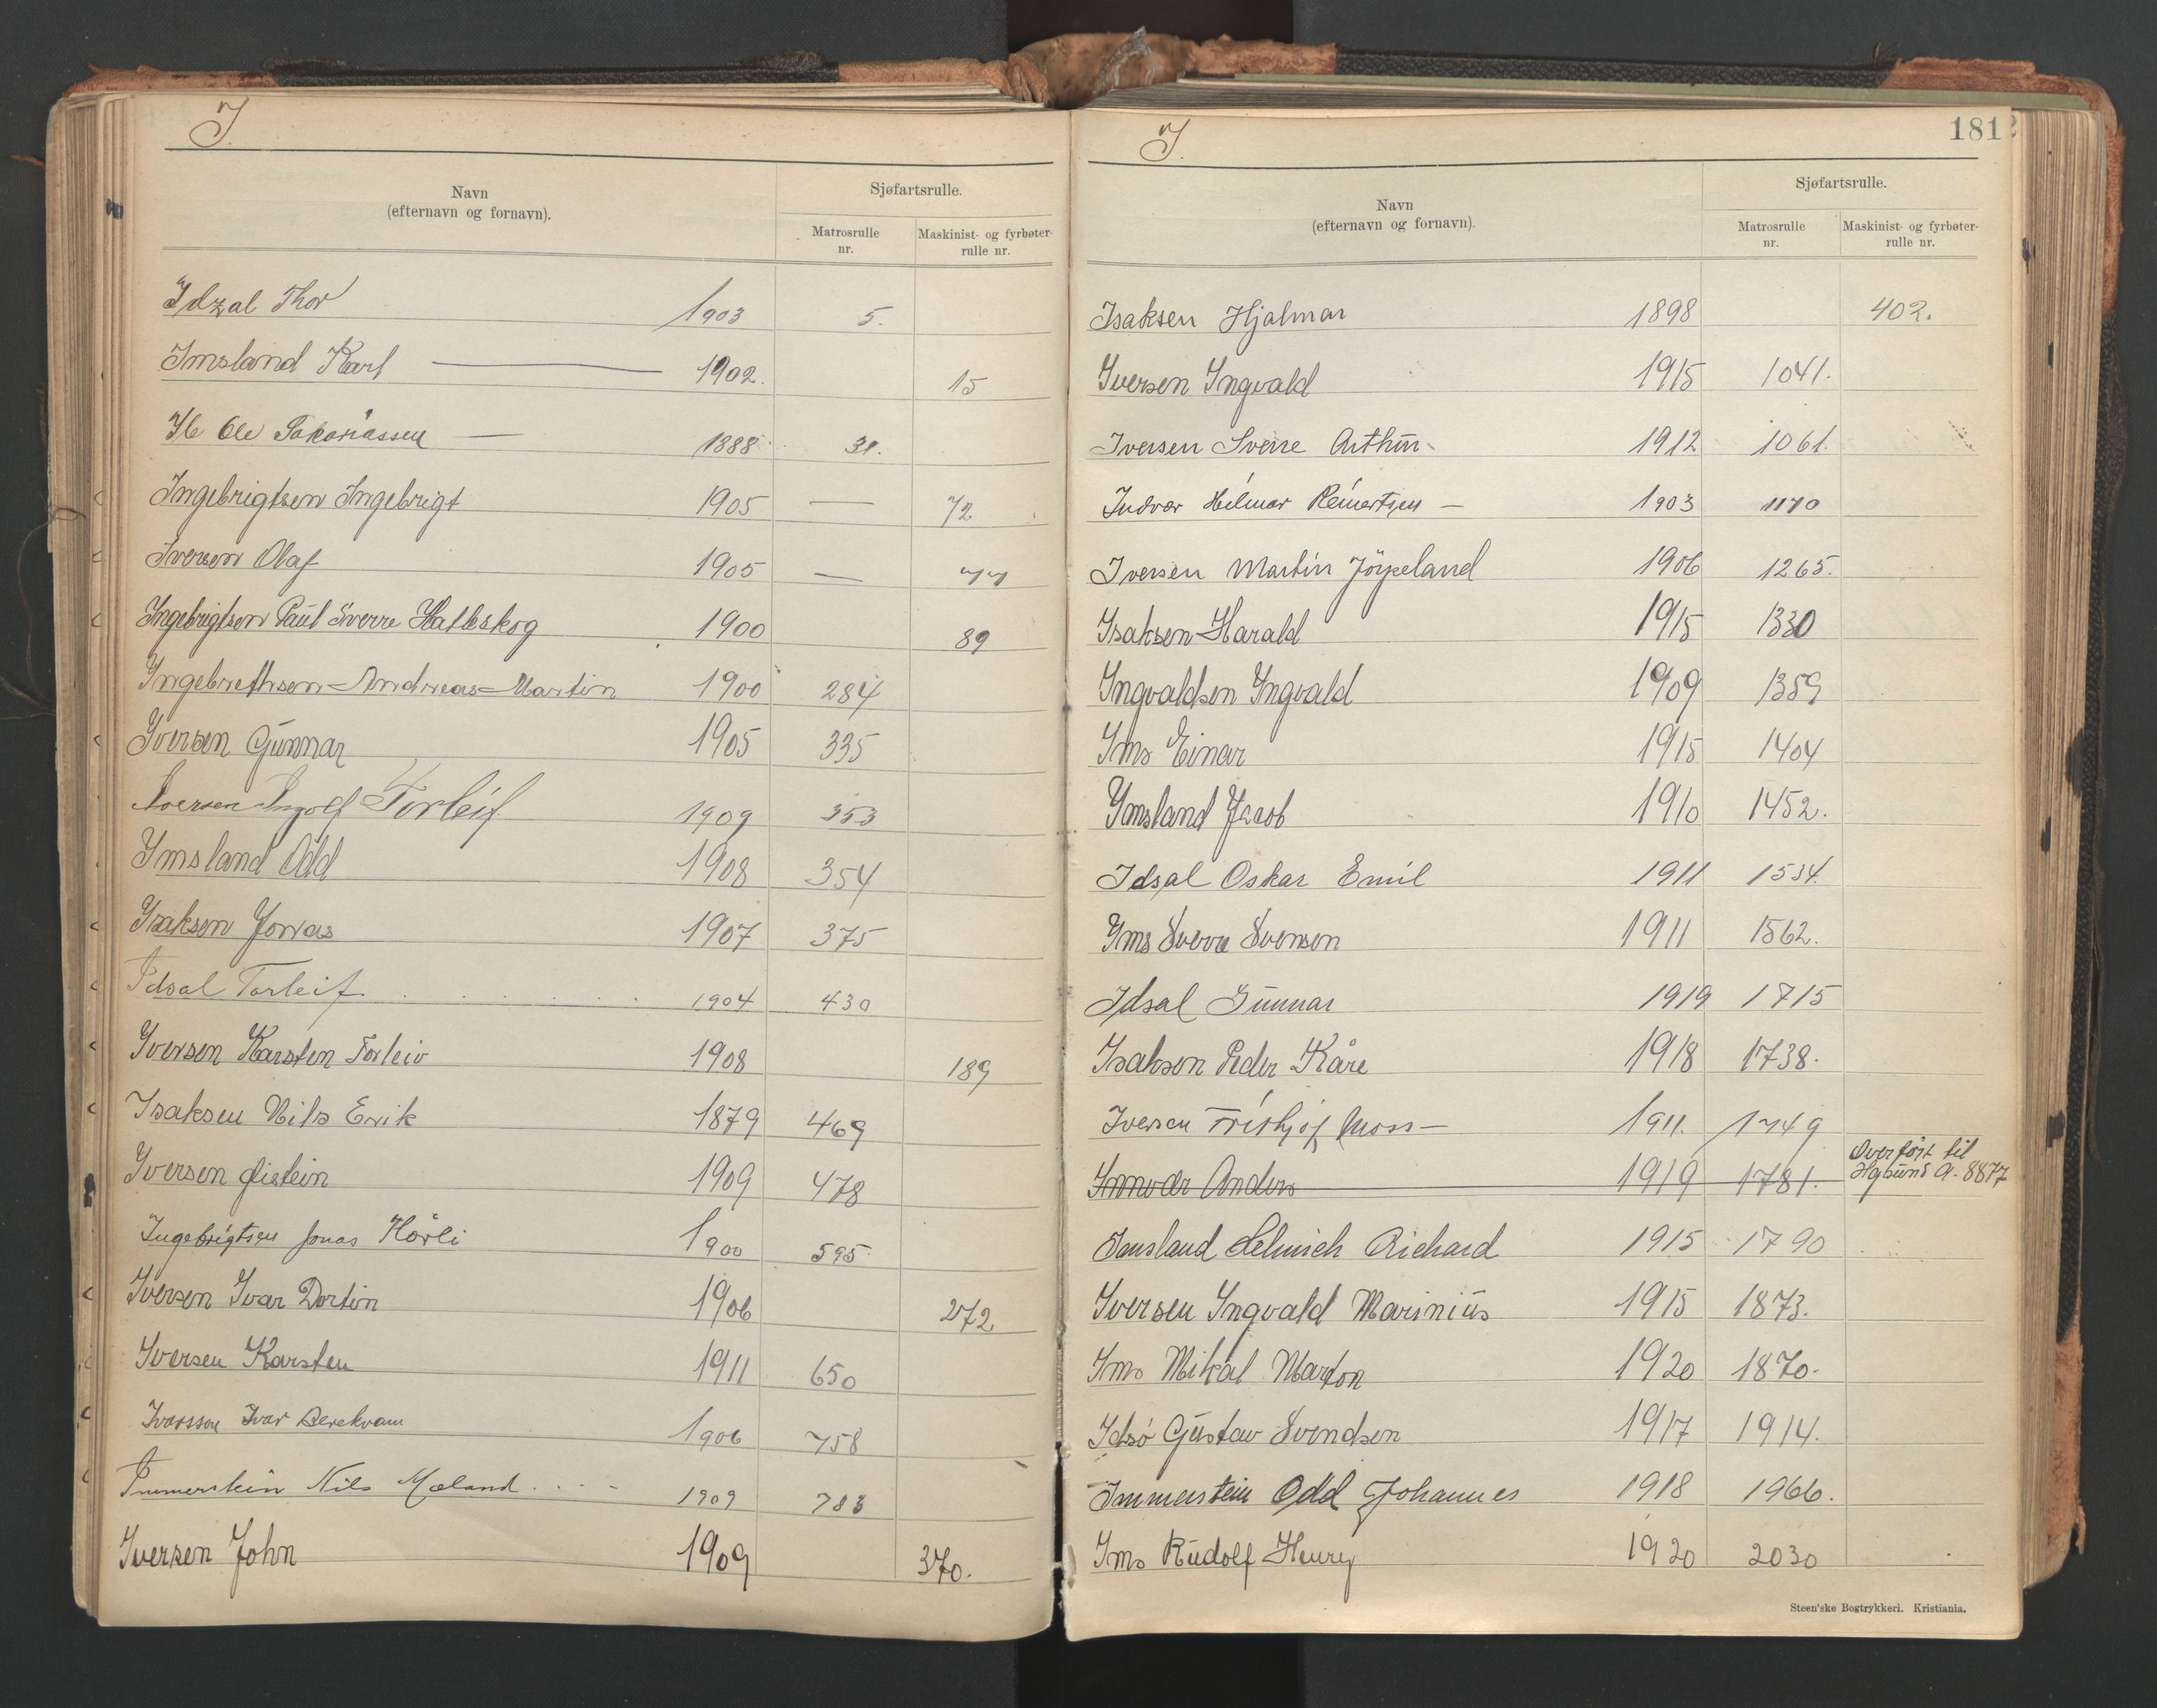 I.
Navn
(efternavn og fornavn).
Sjøfartsrulle.
Matrosrulle
nr.
Maskinist- og fyrbøter-
rulle nr.
Idzal Thor 1903 5.
Imsland Karl — 1902. 15
Ole Sakariassen — 1888 31.
Ingebrigtsen Ingebrigt 1905 — 72
Iversen Olaf 1905 — 77
Ingebrigtsen Paul Sverre Hatleskog 1900 89
Ingebrethsen Andreas Martin 1900 284
Iversen Gunnar 1905 335
Iversen Ingolf Torleif 1909 353
Imsland Odd 1908 354
Isaksen Jonas 1907 375
Idsal Torleif 1904 430
Iversen Karsten Torleiv 1908 189
Isaksen Nils Erik 1879 469
Iversen Øistein 1909 478
Ingebrigtsen Jonas Hårli 1900 595.
Iversen Ivar Dortin 1906 272
Iversen Karsten 1911 650
Ivarsson Ivar 1906 758
Immerstein Nils Mæland 1909 783
Iversen John 1909 370.
I.
181
Navn
(efternavn og fornavn).
Sjøfartsrulle.
Matrosrulle
nr.
Maskinist- og fyrbøter-
rulle nr.
Isaksen Hjalmar 1898 402.
Iversen Ingvald 1915 1041.
Iversen Sverre Arthur 1912 1061.
Hilmar Reinertsen — 1903 1170
Iversen Martin Jörpeland 1906 1265.
Isaksen Harald 1915 1330
Ingvaldsen Ingvald 1909 1359
Ims Einar 1915 1404
Imsland Jacob 1910 1452.
Idsal Oskar Emil 1911 1534.
Ims Sverre Svensen 1911 1562.
Idsal Gunnar 1919 1715
Isaksen Peder Kåre 1918 1738.
Iversen Frithjof Moss — 1911. 1749
Anders 1919 1781. Overført til
Hgsund A. 8877
Imsland Helmich Richard 1915 1790
Iversen Ingvald Marinius 1915 1873.
Ims Mikal Marton 1920 1870.
Idsö Gustav Svendsen 1917 1914.
Immerstein Odd Johannes 1918 1966.
Ims Rudolf Henry 1920 2030
Steen'ske Bogtrykkeri. Kristiania.